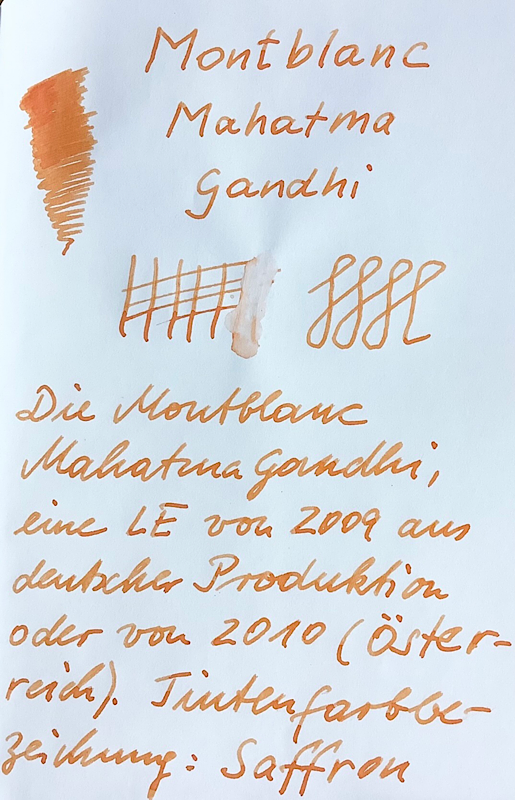 Montblanc
Mahatma
Gandhi
Die Montblanc
Mahatma Gandhi,
eine LE von 2009 aus
deutscher Produktion
oder von 2010 (Öster-
reich). Tintenfarbbe-
zeichnung: Saffron